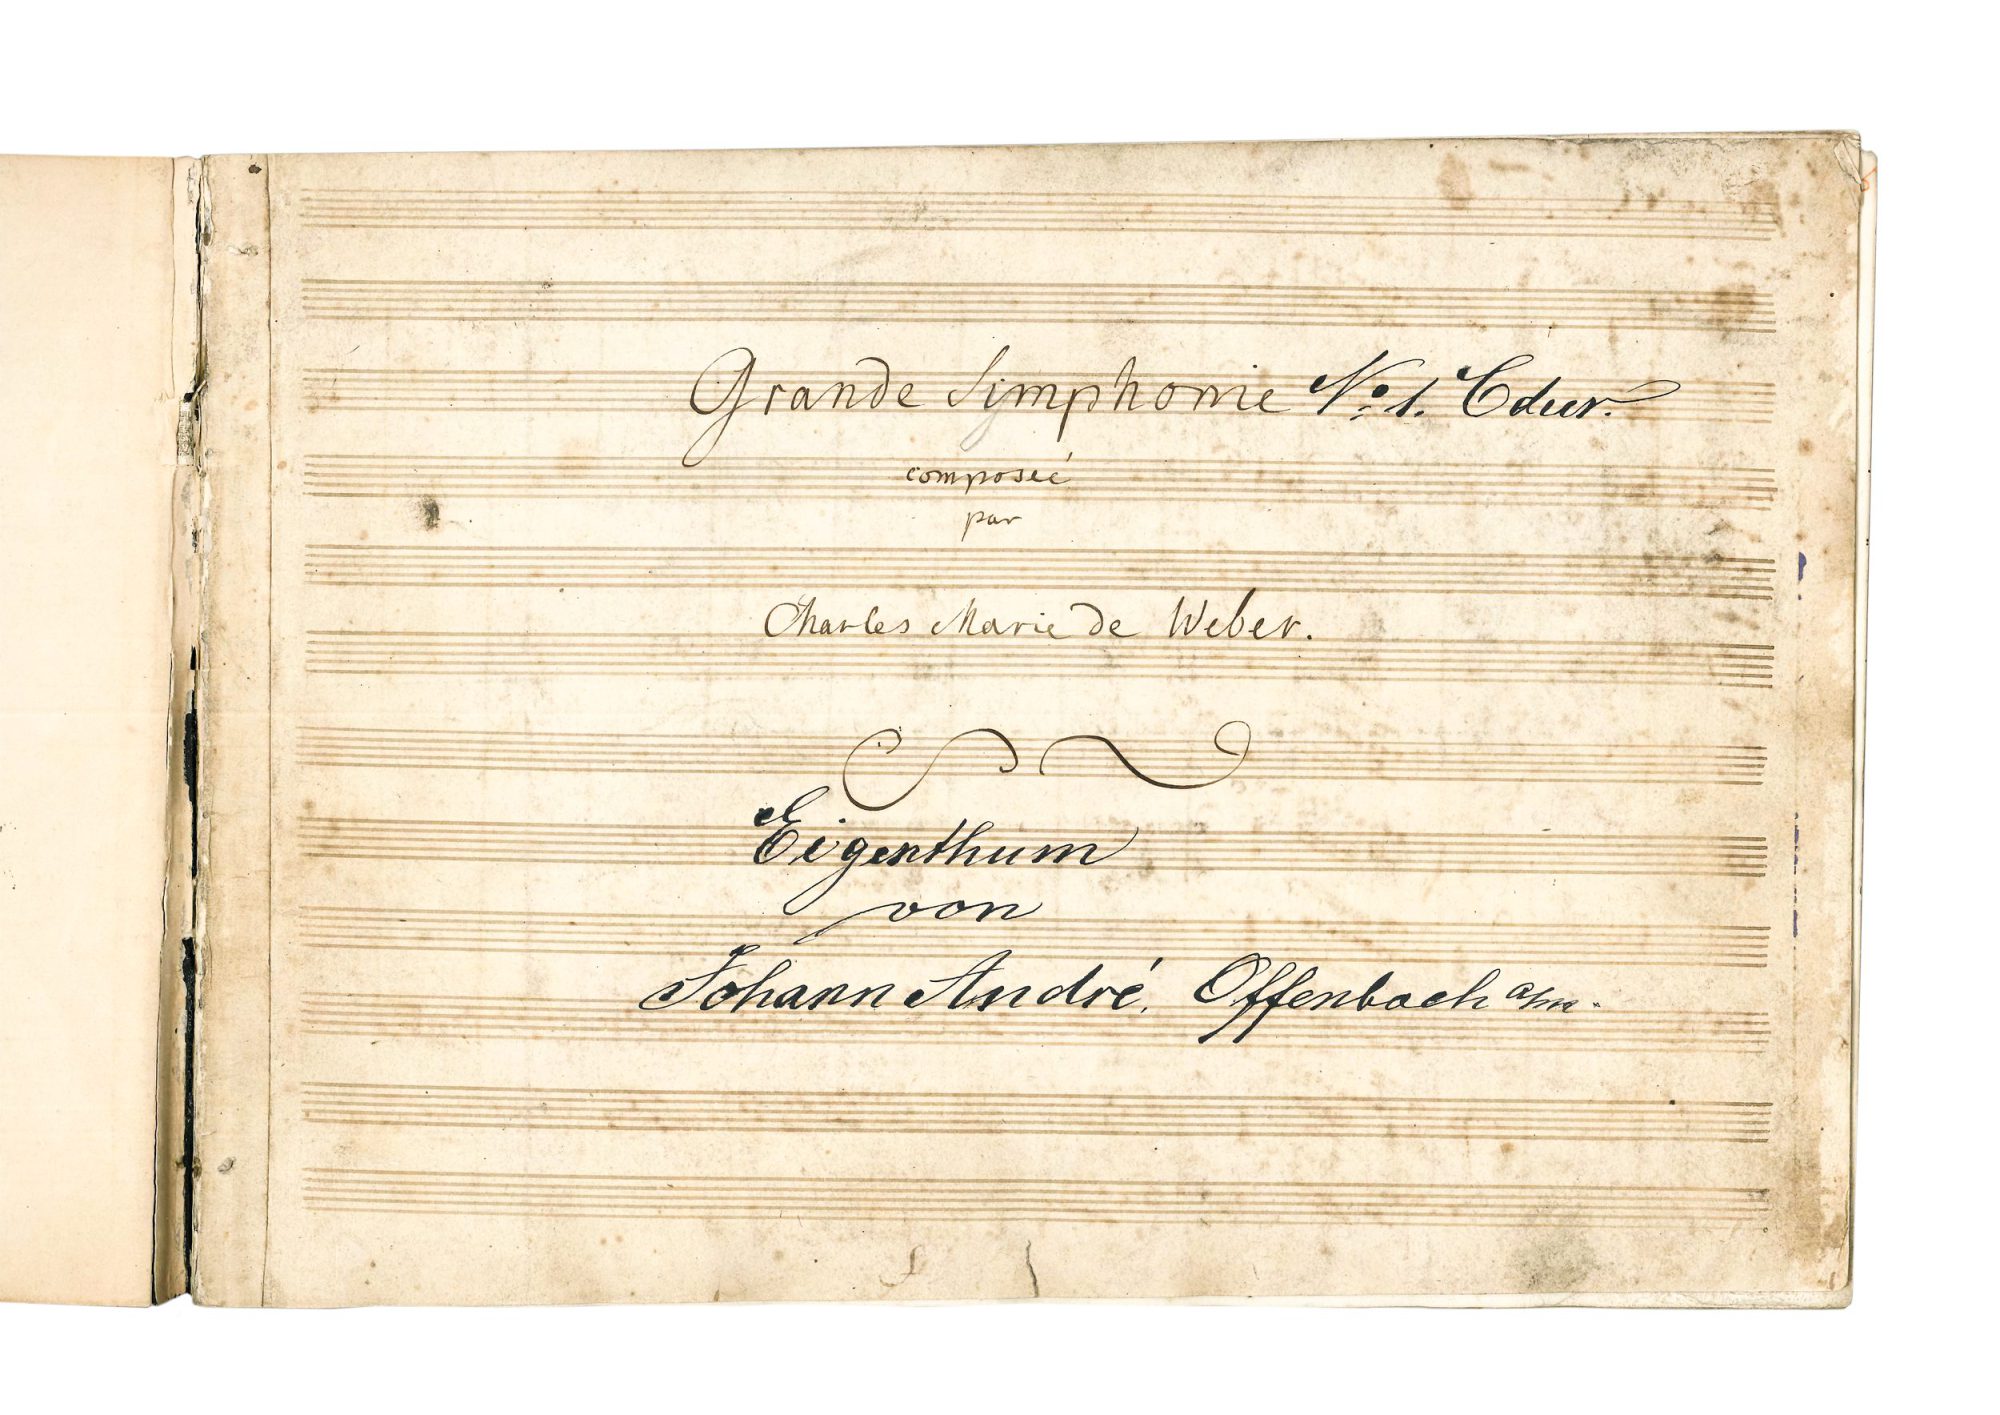 Grande Simphonie No. 1. Cdur.
composeé
par
Charles Marie de Weber.
Eigenthum
von
Johann André, Offenbach a/m.